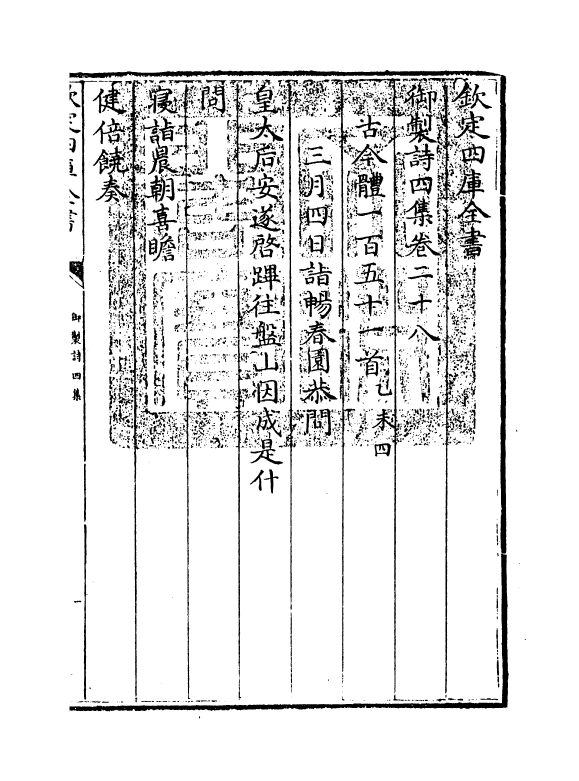 欽定四庫全書
御製詩四集卷二十八
古今體一百五十一首乙未四
三月四日詣暢春園恭問
皇太后安遂啓蹕往盤山因成是什
問
寢詣晨朝喜瞻
健倍饒奏
欽定四庫全書
御製詩四集
一